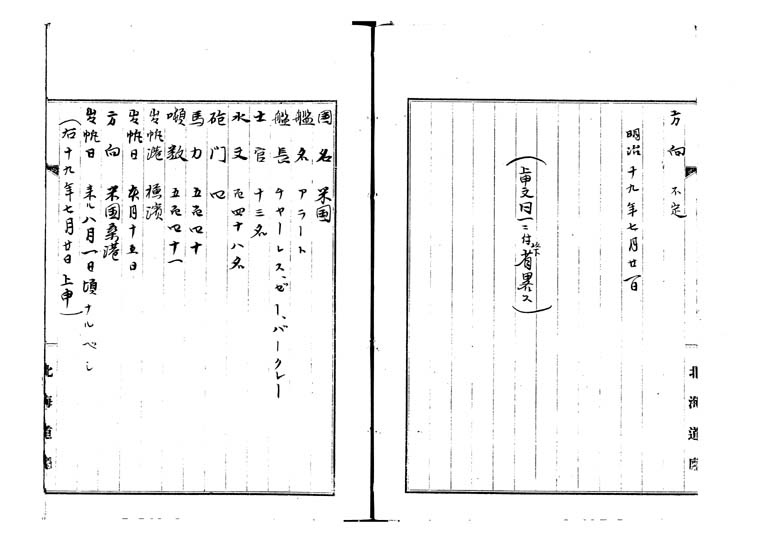 方向 不定
明治十九年七月廿一日
(上申文同一ニ付以下省畧ス)
北海道庁
国名 米国
艦名 アラート
艦長 チャーレス、ゼー、バークレー
士官 十三名
水夫 百四十八名
砲門 四
馬力 五百四十
噸数 五百四十一
発帆港 横濱
発帆日 本月十五日
方向 米国桑港
発帆日 来ル八月一日頃ナルベシ
(右十九年七月廿日上申)
北海道庁